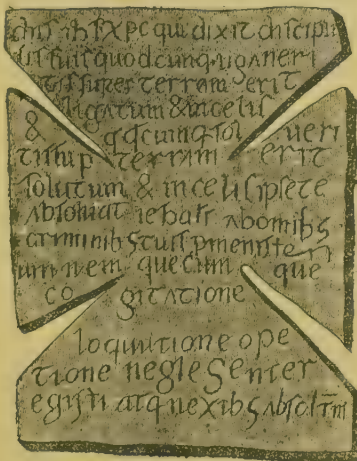 dns ihs xpc qui dixit discipu
lis suis quodcunq ligaueri
tis super terram erit
ligatum & in celis
& qdcunq sol ueri
tis sup terram erit
solutum & in celis ipse te
absoluat ab omibs
criminibs tuis p meniste
um quecum que
co gitatione
loquutione ope
tione neglegenter
egisti atq nexibs absoltm